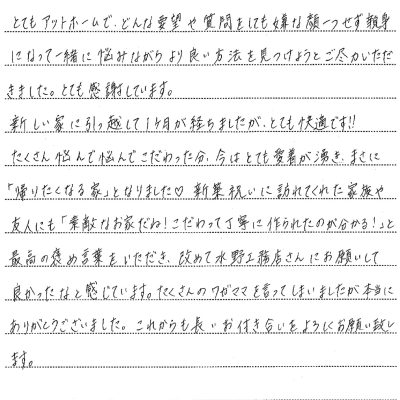 とてもアットホームで、どんな要望や質問をしても嫌な顔一つせず親身
になって一緒に悩みながらより良い方法を見つけようとご尽力いただ
きました。とても感謝しています。
新しい家に引っ越して1ヶ月が経ちましたが、とても快適です!!
たくさん悩んで悩んでこだわった分、今はとても愛着が湧き、まさに
「帰りたくなる家」となりました♡ 新築祝いに訪れてくれた家族や
友人にも「素敵なお家だね!こだわって丁寧に作られたのが分かる!」と
最高の褒め言葉をいただき、改めて水野工務店さんにお願いして
良かったなと感じています。たくさんのワガママを言ってしまいましたが本当に
ありがとうございました。これからも長いお付き合いをよろしくお願い致し
ます。